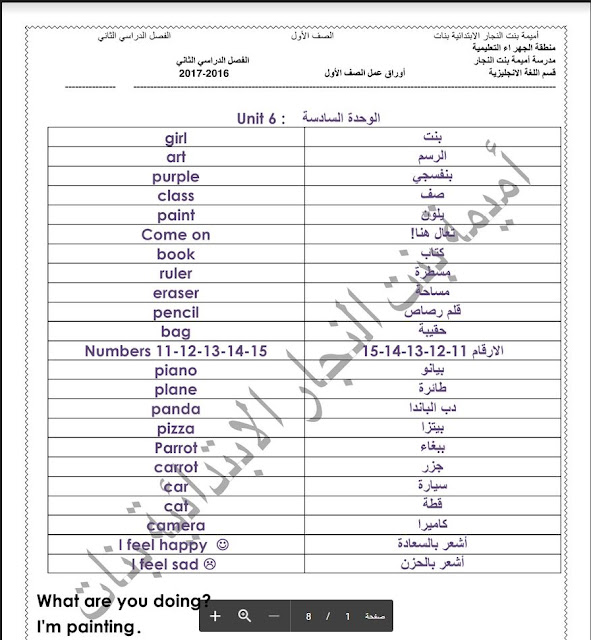 أميمة بنت النجار الابتدائية بنات الصف الأول الفصل الدراسي الثاني
منطقة الجهراء التعليمية
مدرسة أميمة بنت النجار الفصل الدراسي الثاني
قسم اللغة الانجليزية أوراق عمل الصف الأول 2016-2017
Unit 6 : الوحدة السادسة
girl بنت
art الرسم
purple بنفسجي
class صف
paint يلون
Come on تعال هنا!
book كتاب
ruler مسطرة
eraser مساحة
pencil قلم رصاص
bag حقيبة
Numbers 11-12-13-14-15 الارقام 11-12-13-14-15
piano بيانو
plane طائرة
panda دب الباندا
pizza بيتزا
Parrot ببغاء
carrot جزر
car سيارة
cat قطة
camera كاميرا
I feel happy ☺ أشعر بالسعادة
I feel sad ☹ أشعر بالحزن
أميمه بنت النجار الابتدائية بنات
What are you doing?
I'm painting.
صفحة 1 / 8